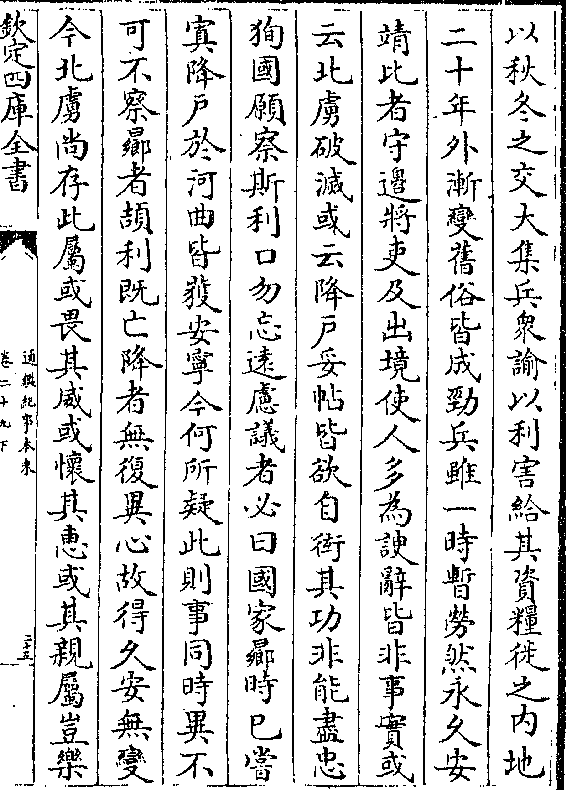 以秋冬之交大集兵衆諭以利害給其資糧徙之内地
二十年外漸變舊俗皆成勁兵雖一時暫勞然永久安
靖比者守邊將吏及出境使人多為諛辭皆非事實或
云北虜破滅或云降戶妥帖皆欲自衒其功非能盡忠
狥國願察斯利口勿忘遠慮議者必曰國家曏時已嘗
寘降戶於河曲皆獲安寧今何所疑此則事同時異不
可不察曏者頡利既亡降者無復異心故得久安無變
今北虜尚存此屬或畏其威或懷其惠或其親屬豈樂
欽定四庫全書
通鑑紀事本末
卷二十九下
二十五